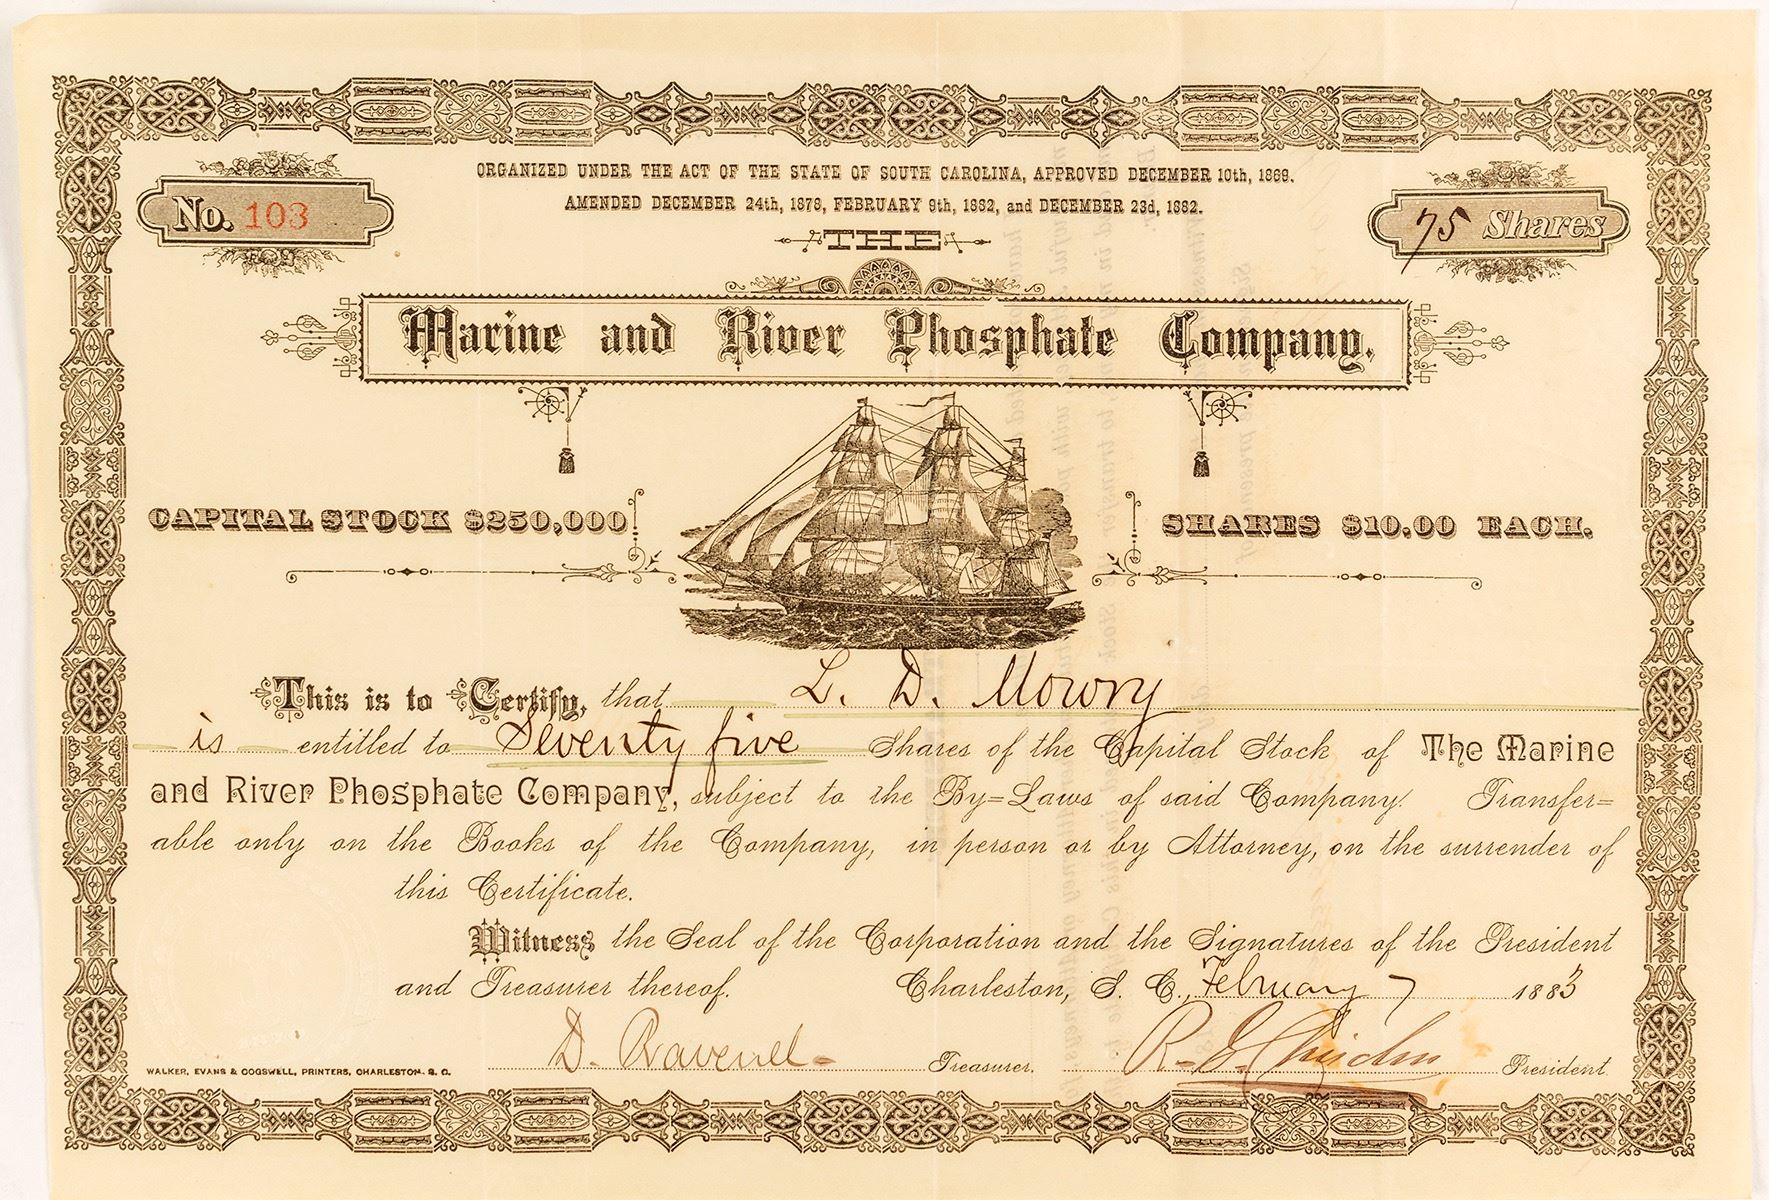 ORGANIZED UNDER THE ACT OF THE STATE OF SOUTH CAROLINA, APPROVED DECEMBER 10th, 1869.
AMENDED DECEMBER 24th, 1878, FEBRUARY 9th, 1882, and DECEMBER 23d, 1882.
No. 103
75 Shares
THE
Marine and River Phosphate Company.
CAPITAL STOCK $250,000
SHARES $10.00 EACH.
This is to Certify, that L. D. Mowry
is entitled to Seventy five Shares of the Capital Stock of The Marine
and River Phosphate Company, subject to the By=Laws of said Company. Transfer=
able only on the Books of the Company, in person or by Attorney, on the surrender of
this Certificate.
Witness the Seal of the Corporation and the Signatures of the President
and Treasurer thereof. Charleston, S. C., February 7 1883
D. Ravenel Treasurer. R. G. Chisolm President.
WALKER, EVANS & COGSWELL, PRINTERS, CHARLESTON, S. C.